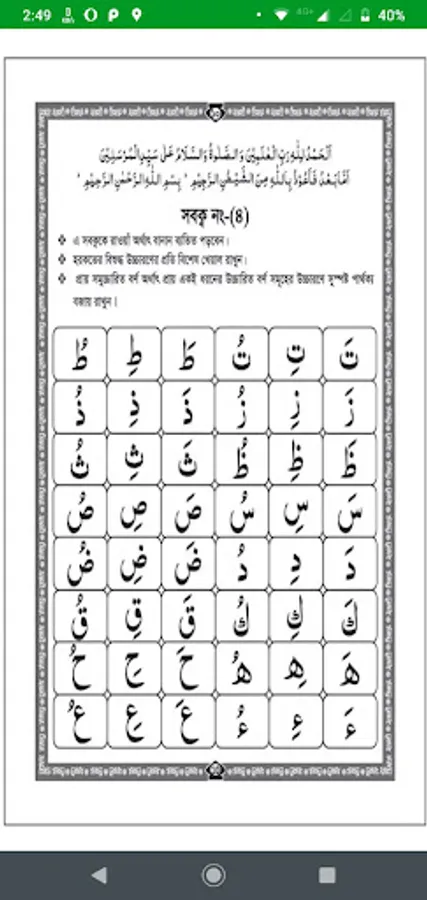 2:49 4G+ 40%
اَلْحَمْدُ لِلّٰهِ رَبِّ الْعٰلَمِيْنَ وَالصَّلٰوةُ وَالسَّلَامُ عَلٰى سَيِّدِ الْمُرْسَلِيْنَ
اَمَّا بَعْدُ فَاَعُوْذُ بِاللّٰهِ مِنَ الشَّيْطٰنِ الرَّجِيْمِ ؕ بِسْمِ اللّٰهِ الرَّحْمٰنِ الرَّحِيْمِ ؕ
সবক্ব নং-(৪)
❖ এ সবক্বকে রাওয়াঁ অর্থাৎ বানান ব্যতিত পড়বেন।
❖ হরকতের বিশুদ্ধ উচ্চারণের প্রতি বিশেষ খেয়াল রাখুন।
❖ প্রায় সমুচ্চারিত বর্ণ অর্থাৎ প্রায় একই ধরনের উচ্চারিত বর্ণ সমূহের উচ্চারণে সুস্পষ্ট পার্থক্য
বজায় রাখুন।
تَ تِ تُ طَ طِ طُ
زَ زِ زُ ذَ ذِ ذُ
ظَ ظِ ظُ ثَ ثِ ثُ
سَ سِ سُ صَ صِ صُ
دَ دِ دُ ضَ ضِ ضُ
كَ كِ كُ قَ قِ قُ
هَ هِ هُ حَ حِ حُ
ءَ ءِ ءُ عَ عِ عُ